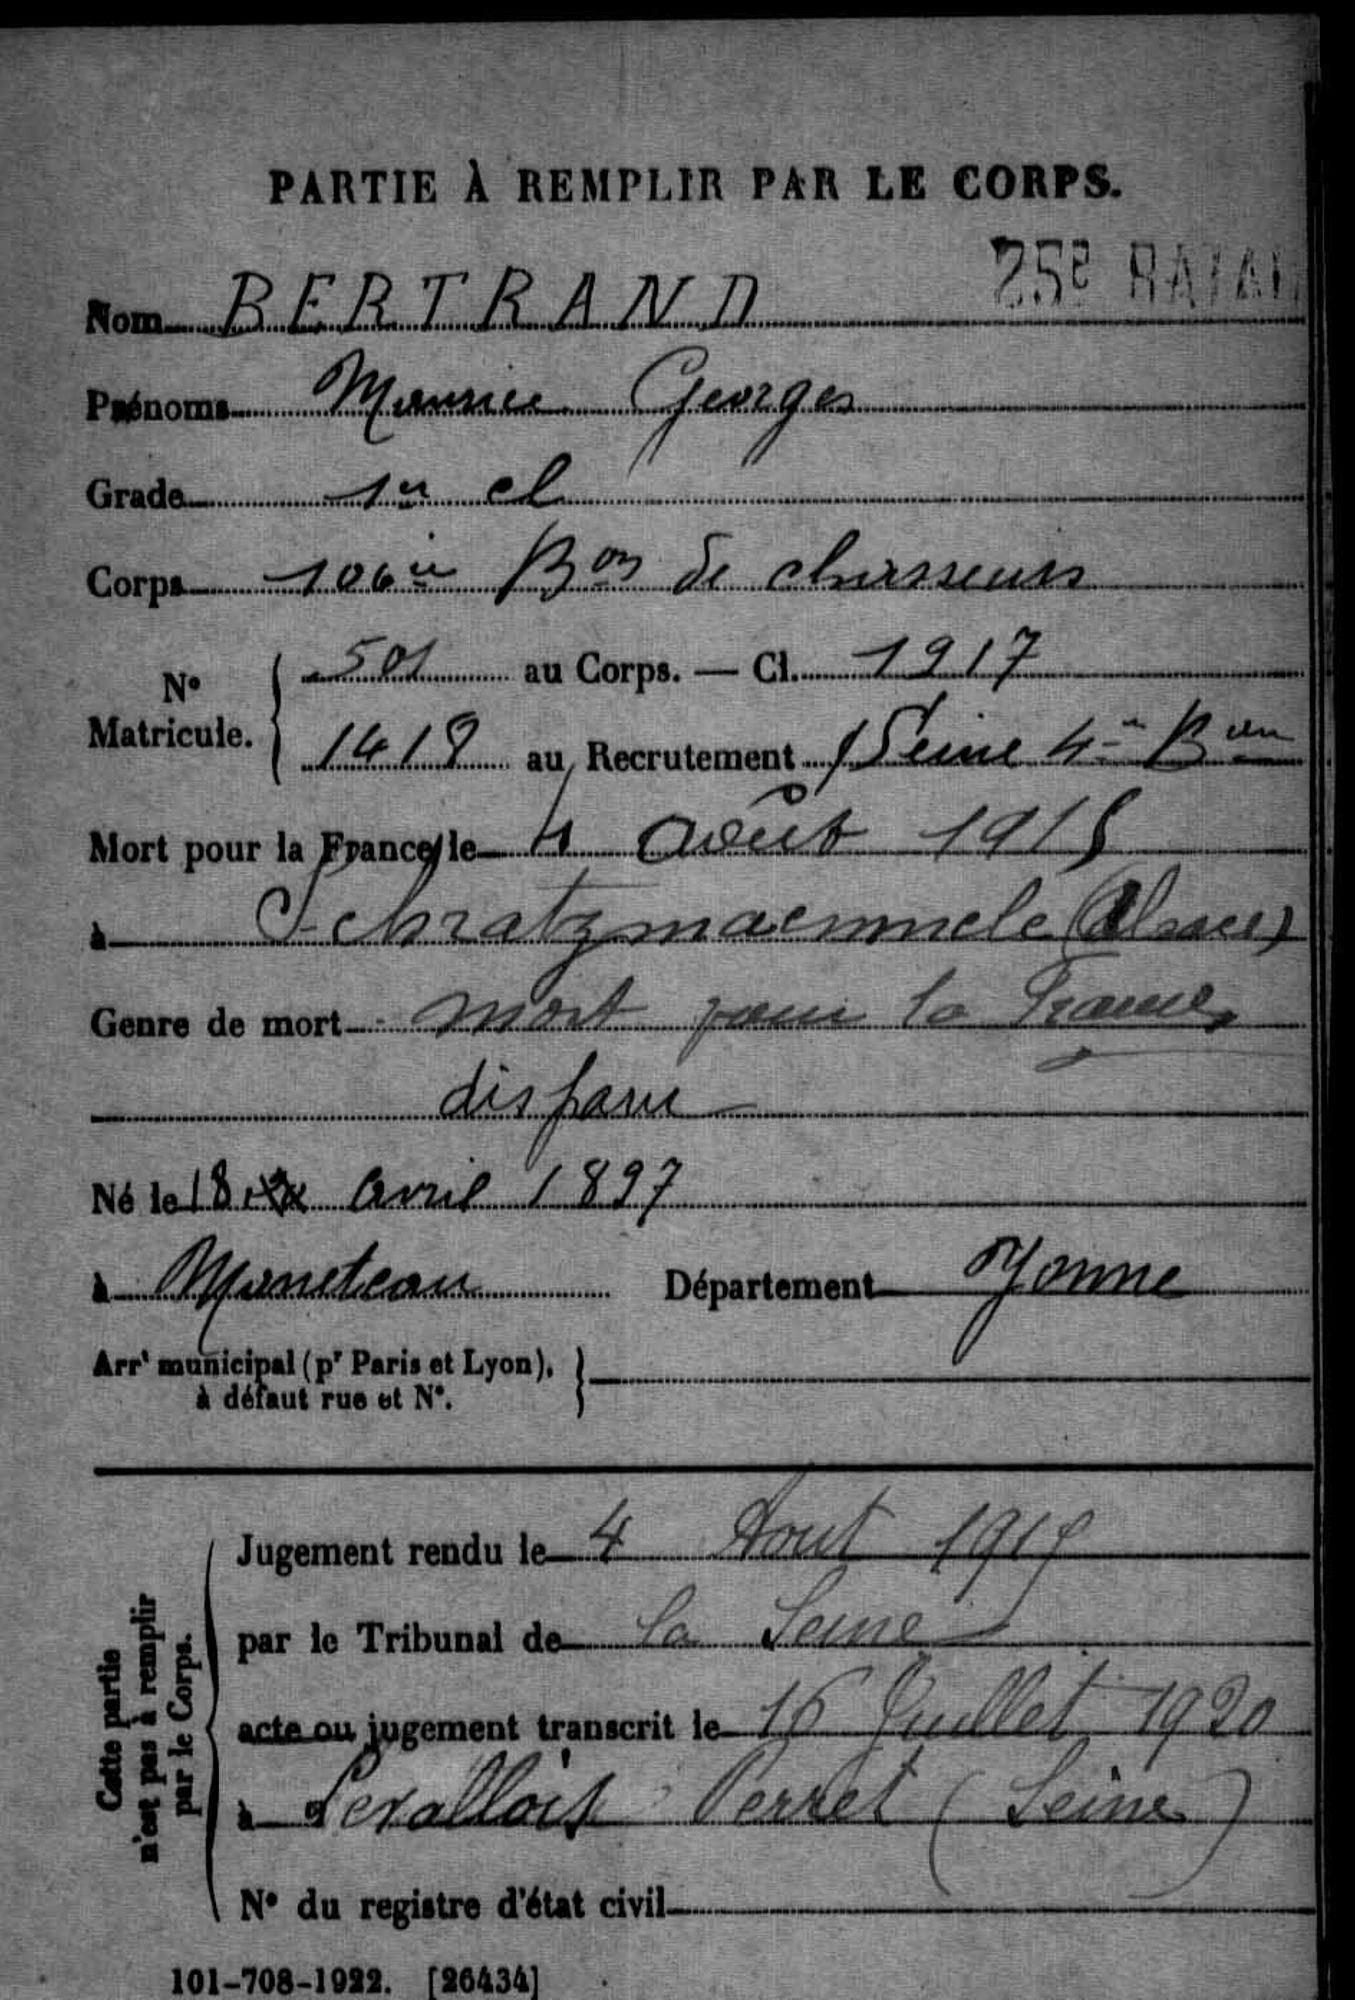 PARTIE À REMPLIR PAR LE CORPS.
25e BATAI
Nom BERTRAND
Prénoms Maurice Georges
Grade 1re cl
Corps 106ie Bon de chasseurs
N° Matricule. 501 au Corps. — Cl. 1917
1419 au Recrutement Seine 4e Bau
Mort pour la France le 4 août 1915
à Schratzmaennele (Alsace)
Genre de mort mort pour la France
disparu
Né le 18 avril 1897
à Moneteau Département Yonne
Arrt municipal (pr Paris et Lyon), à défaut rue et N°.
Cette partie n'est pas à remplir par le Corps.
Jugement rendu le 4 Aout 1919
par le Tribunal de la Seine
acte ou jugement transcrit le 16 Juillet 1920
à Levallois Perret (Seine)
N° du registre d'état civil
101-708-1922. [26434]